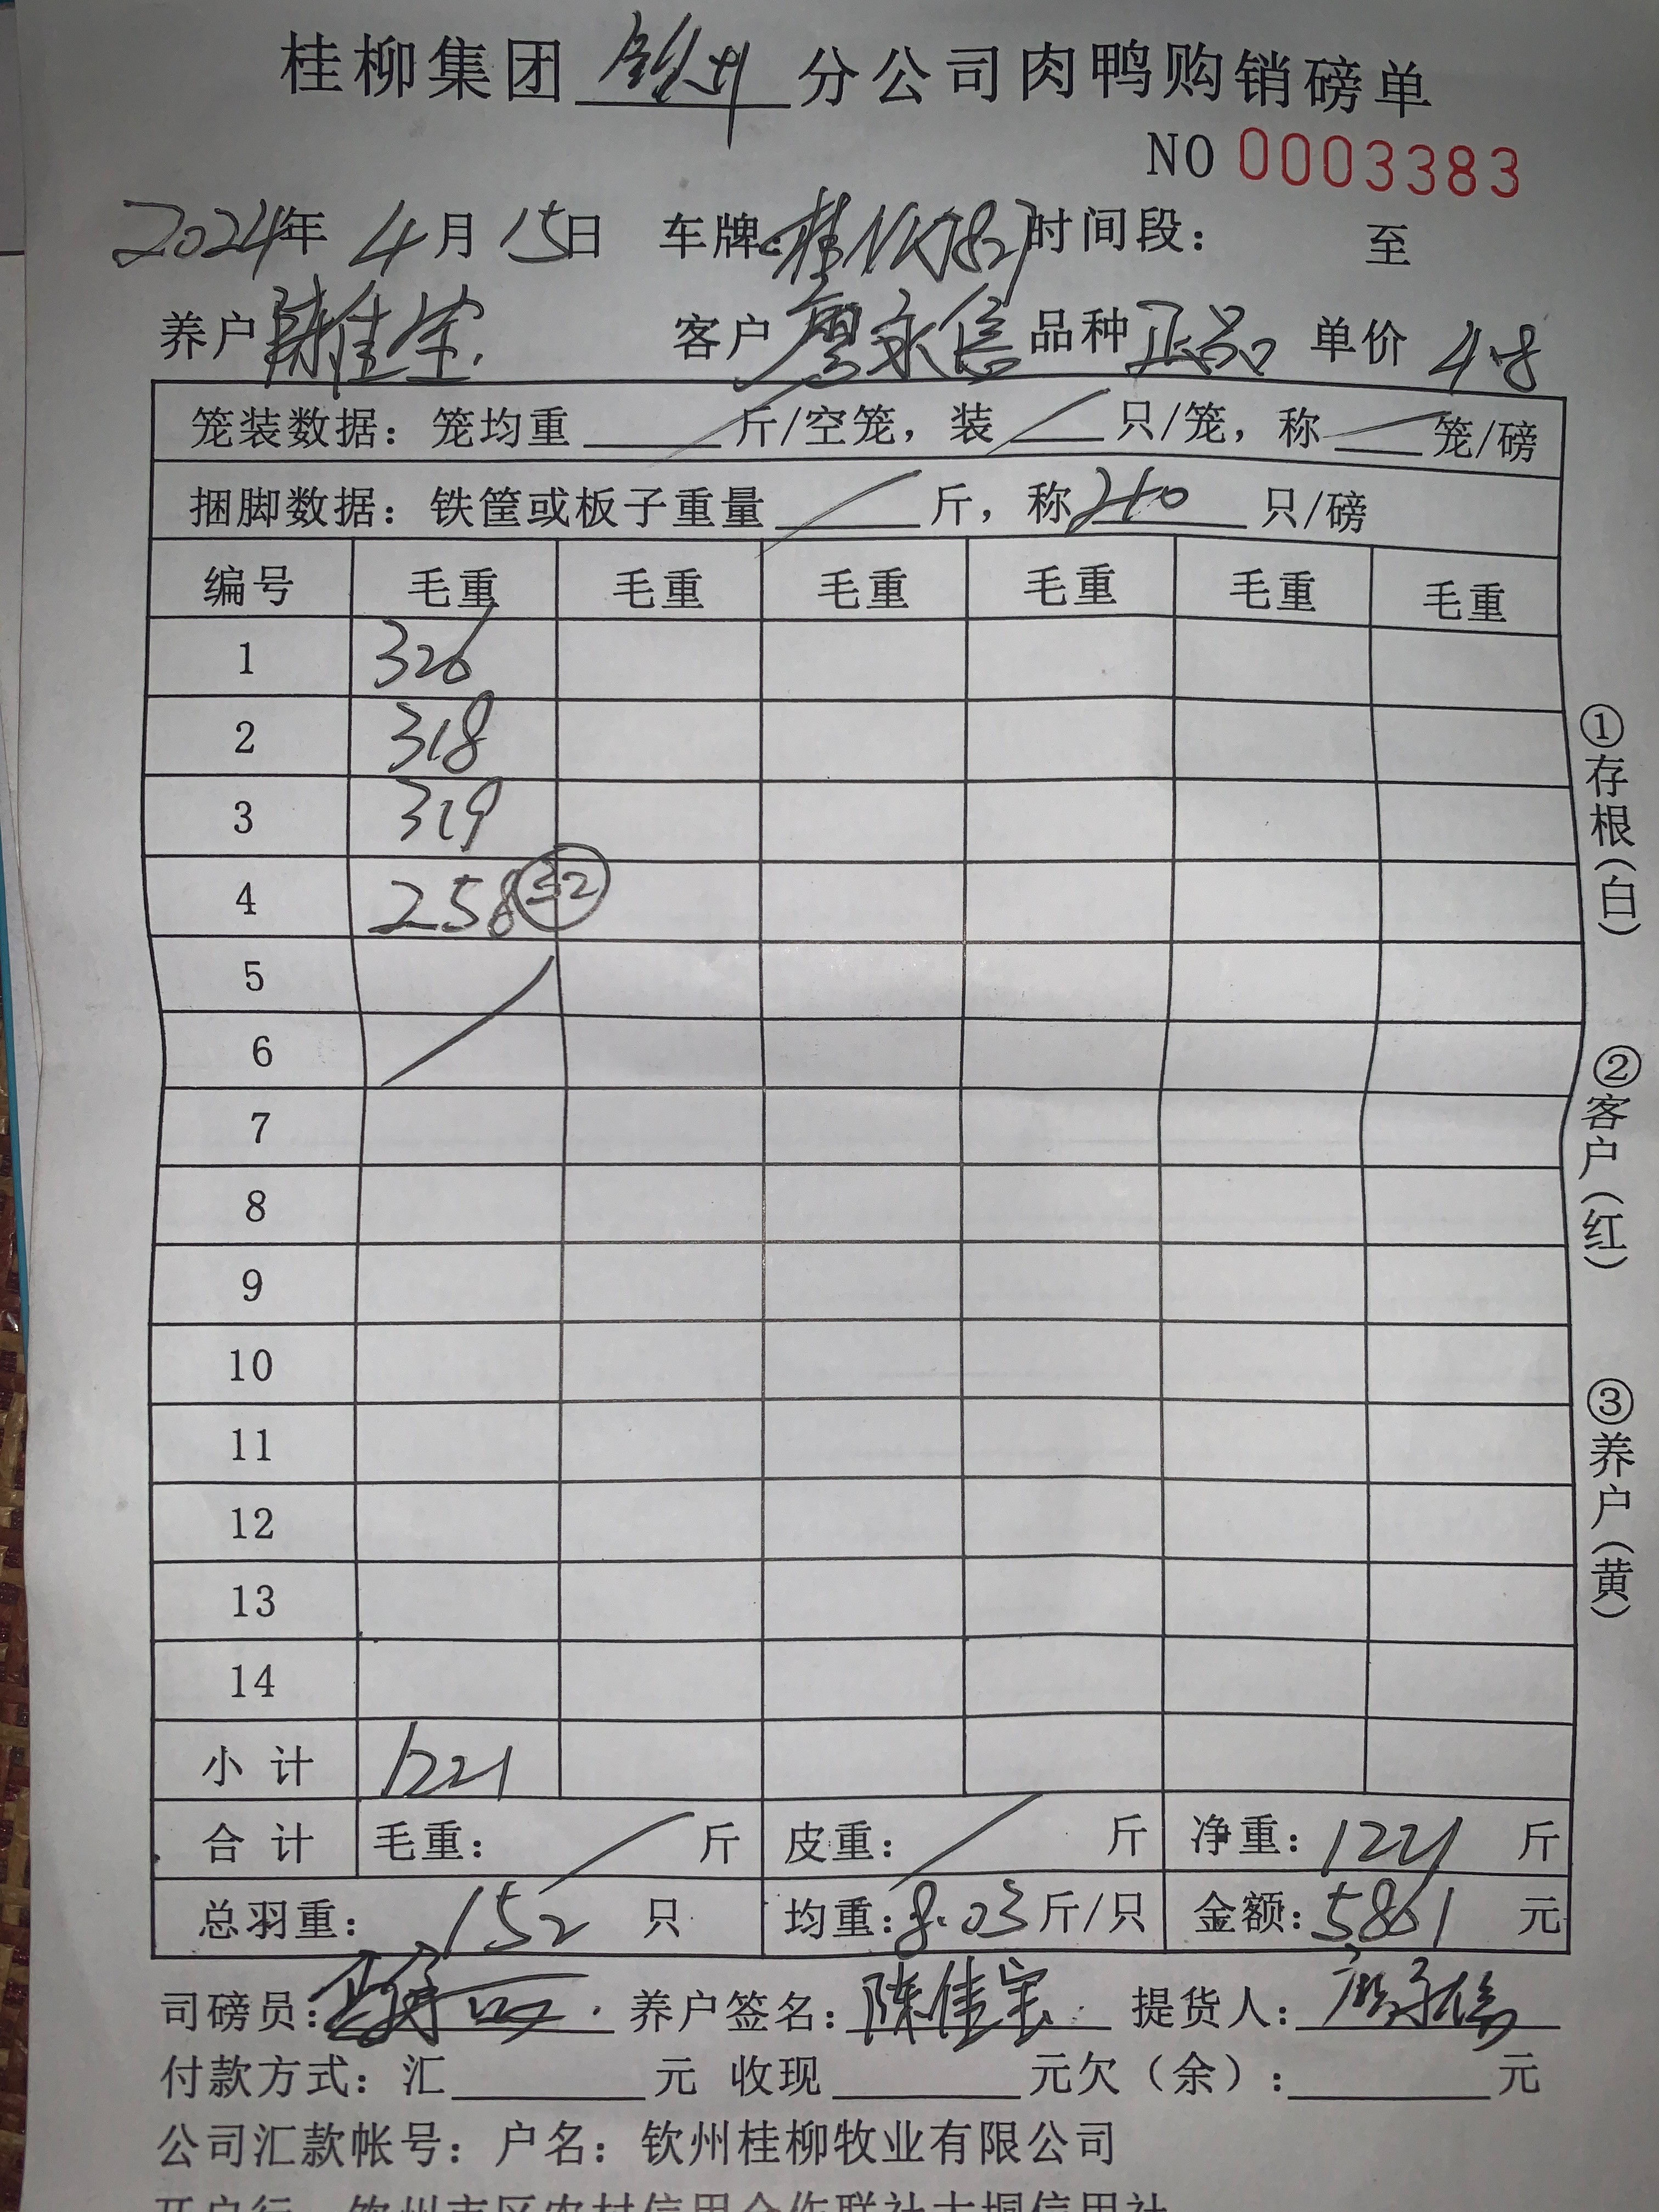 桂柳集团 钦州 分公司肉鸭购销磅单
NO 0003383
2024年 4月 15日 车牌:桂NK782 时间段: 至
养户 陈佳宝 客户 廖永信 品种 正品 单价 4.8
笼装数据: 笼均重 斤/空笼, 装 只/笼, 称 笼/磅
捆脚数据: 铁筐或板子重量 斤, 称 只/磅
编号 毛重 毛重 毛重 毛重 毛重 毛重
1 326
2 318
3 319
4 258 32
5
6
7
8
9
10
11
12
13
14
小计 1221
合计 毛重: 斤 皮重: 斤 净重: 1221 斤
总羽重: 152 只 均重: 8.03 斤/只 金额: 5861 元
司磅员: 养户签名: 陈佳宝 提货人: 廖永信
付款方式: 汇 元 收现 元欠(余): 元
公司汇款帐号: 户名: 钦州桂柳牧业有限公司
开户行: 钦州市区农村信用合作联社大垌信用社
①存根(白)
②客户(红)
③养户(黄)